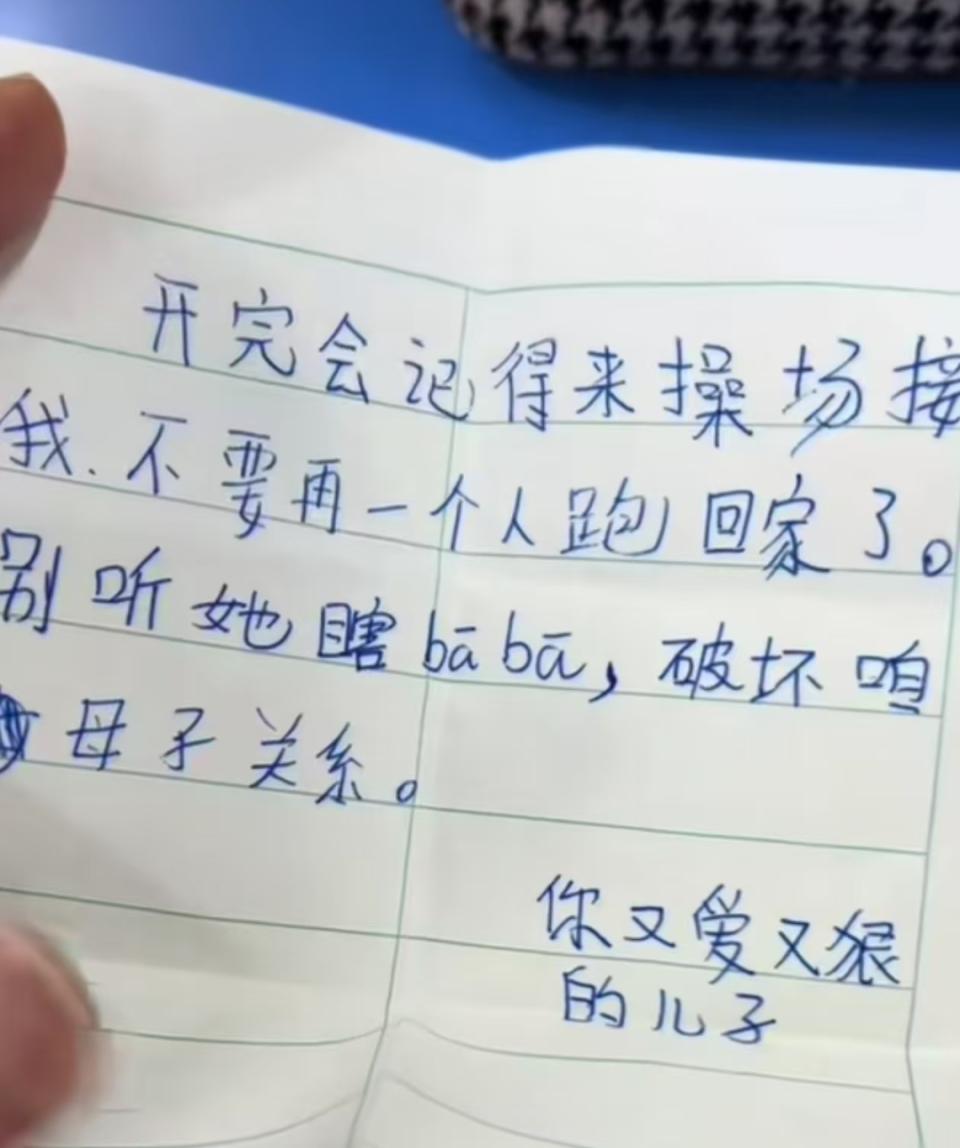 开完会记得来操场接
我.不要再一个人跑回家了。
别听她瞎bābā,破坏咱
母子关系。
你又爱又狠
的儿子